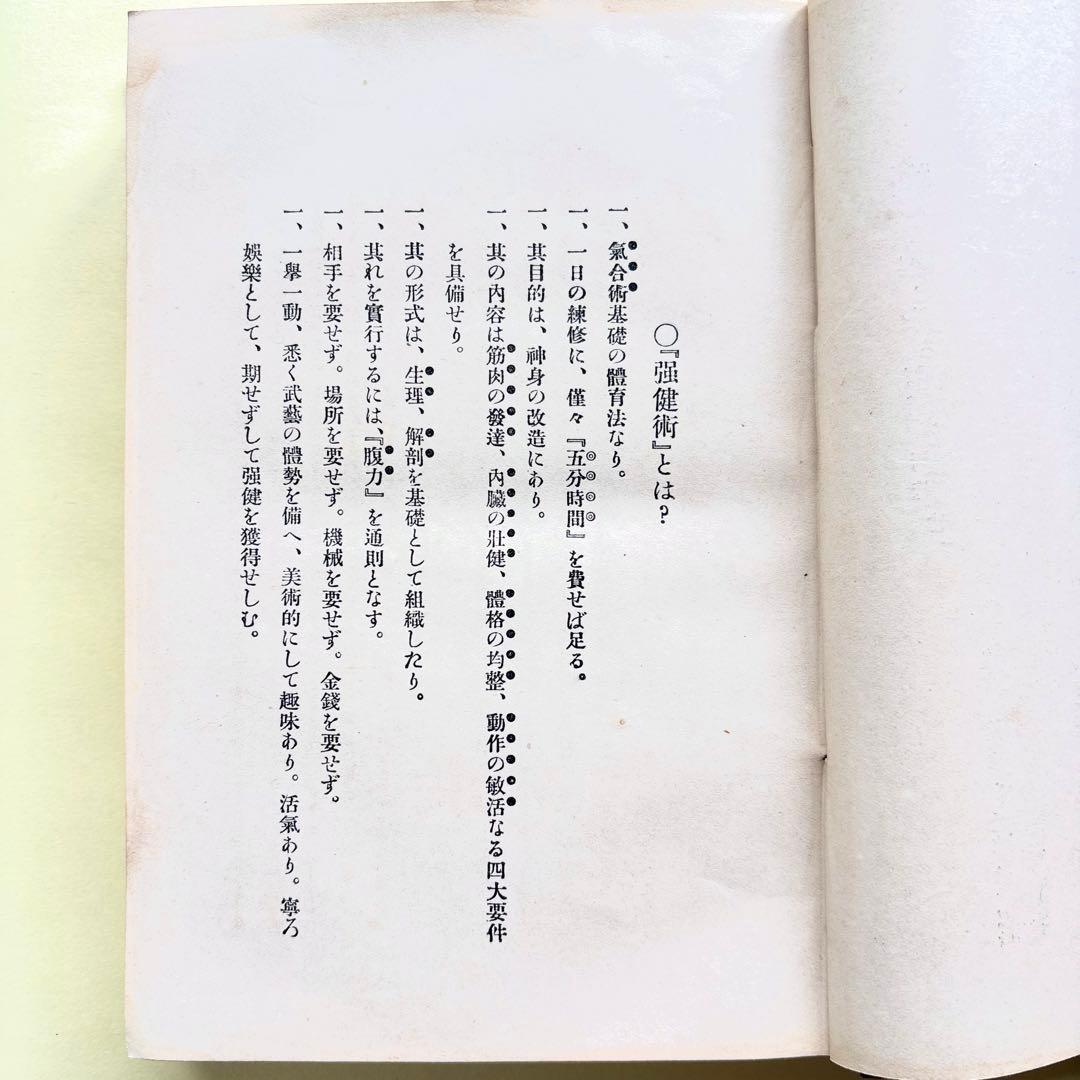 〇『强健術』とは?
一、氣合術基礎の體育法なり。
一、一日の練修に、僅々『五分時間』を費せば足る。
一、其目的は、神身の改造にあり。
一、其の內容は筋肉の發達、內臟の壯健、體格の均整、動作の敏活なる四大要件
を具備せり。
一、其の形式は、生理、解剖を基礎として組織したり。
一、其れを實行するには、『腹力』を通則となす。
一、相手を要せず。場所を要せず。機械を要せず。金錢を要せず。
一、一擧一動、悉く武藝の體勢を備へ、美術的にして趣味あり。活氣あり。寧ろ
娛樂として、期せずして强健を獲得せしむ。